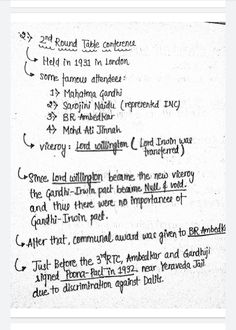 2nd Round Table Conference
Held in 1931 in London
some famous attendees:
1> Mahatma Gandhi
2> Sarojini Naidu (represented INC)
3> BR Ambedkar
4> Mohd Ali Jinnah
viceroy: Lord willington (Lord Irwin was
transferred)
Since Lord willington became the new viceroy
the Gandhi-Irwin pact became Null & void.
and thus there were no importances of
Gandhi-Irwin pact.
After that, communal award was given to BR Ambedkar
Just Before the 3rd RTC, Ambedkar and Gandhiji
signed "Poona-Pact" in 1932, near Yeraveda Jail
due to discrimination against Dalits.